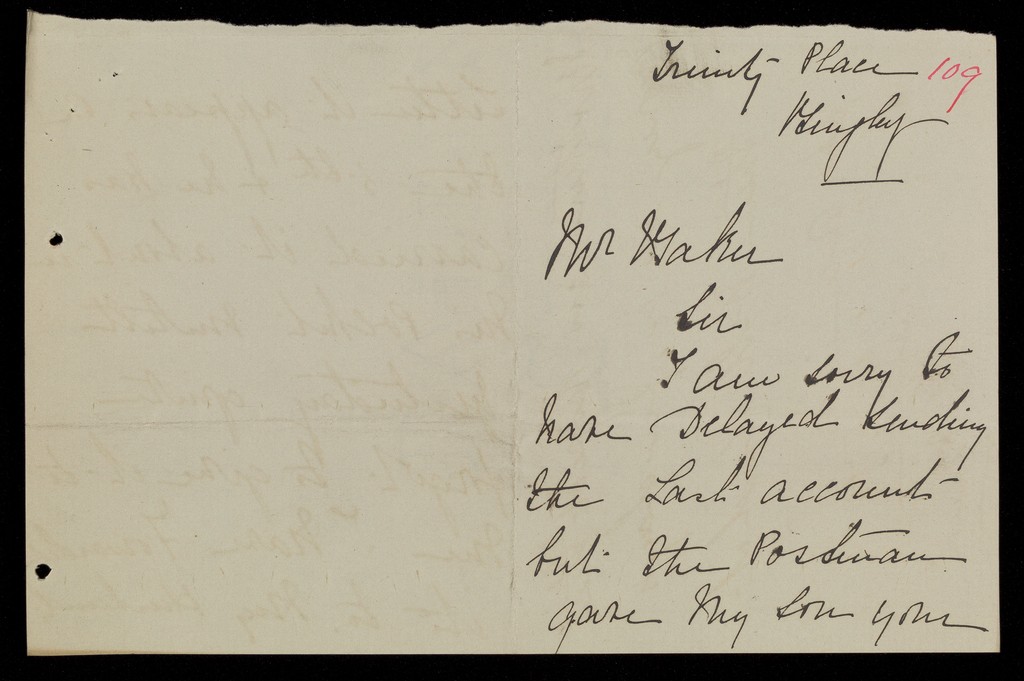 Trinity Place 109
Bingley
Mr Baker
Sir
I am sorry to
have Delayed sending
the Last account
but the Postman
gave My son your